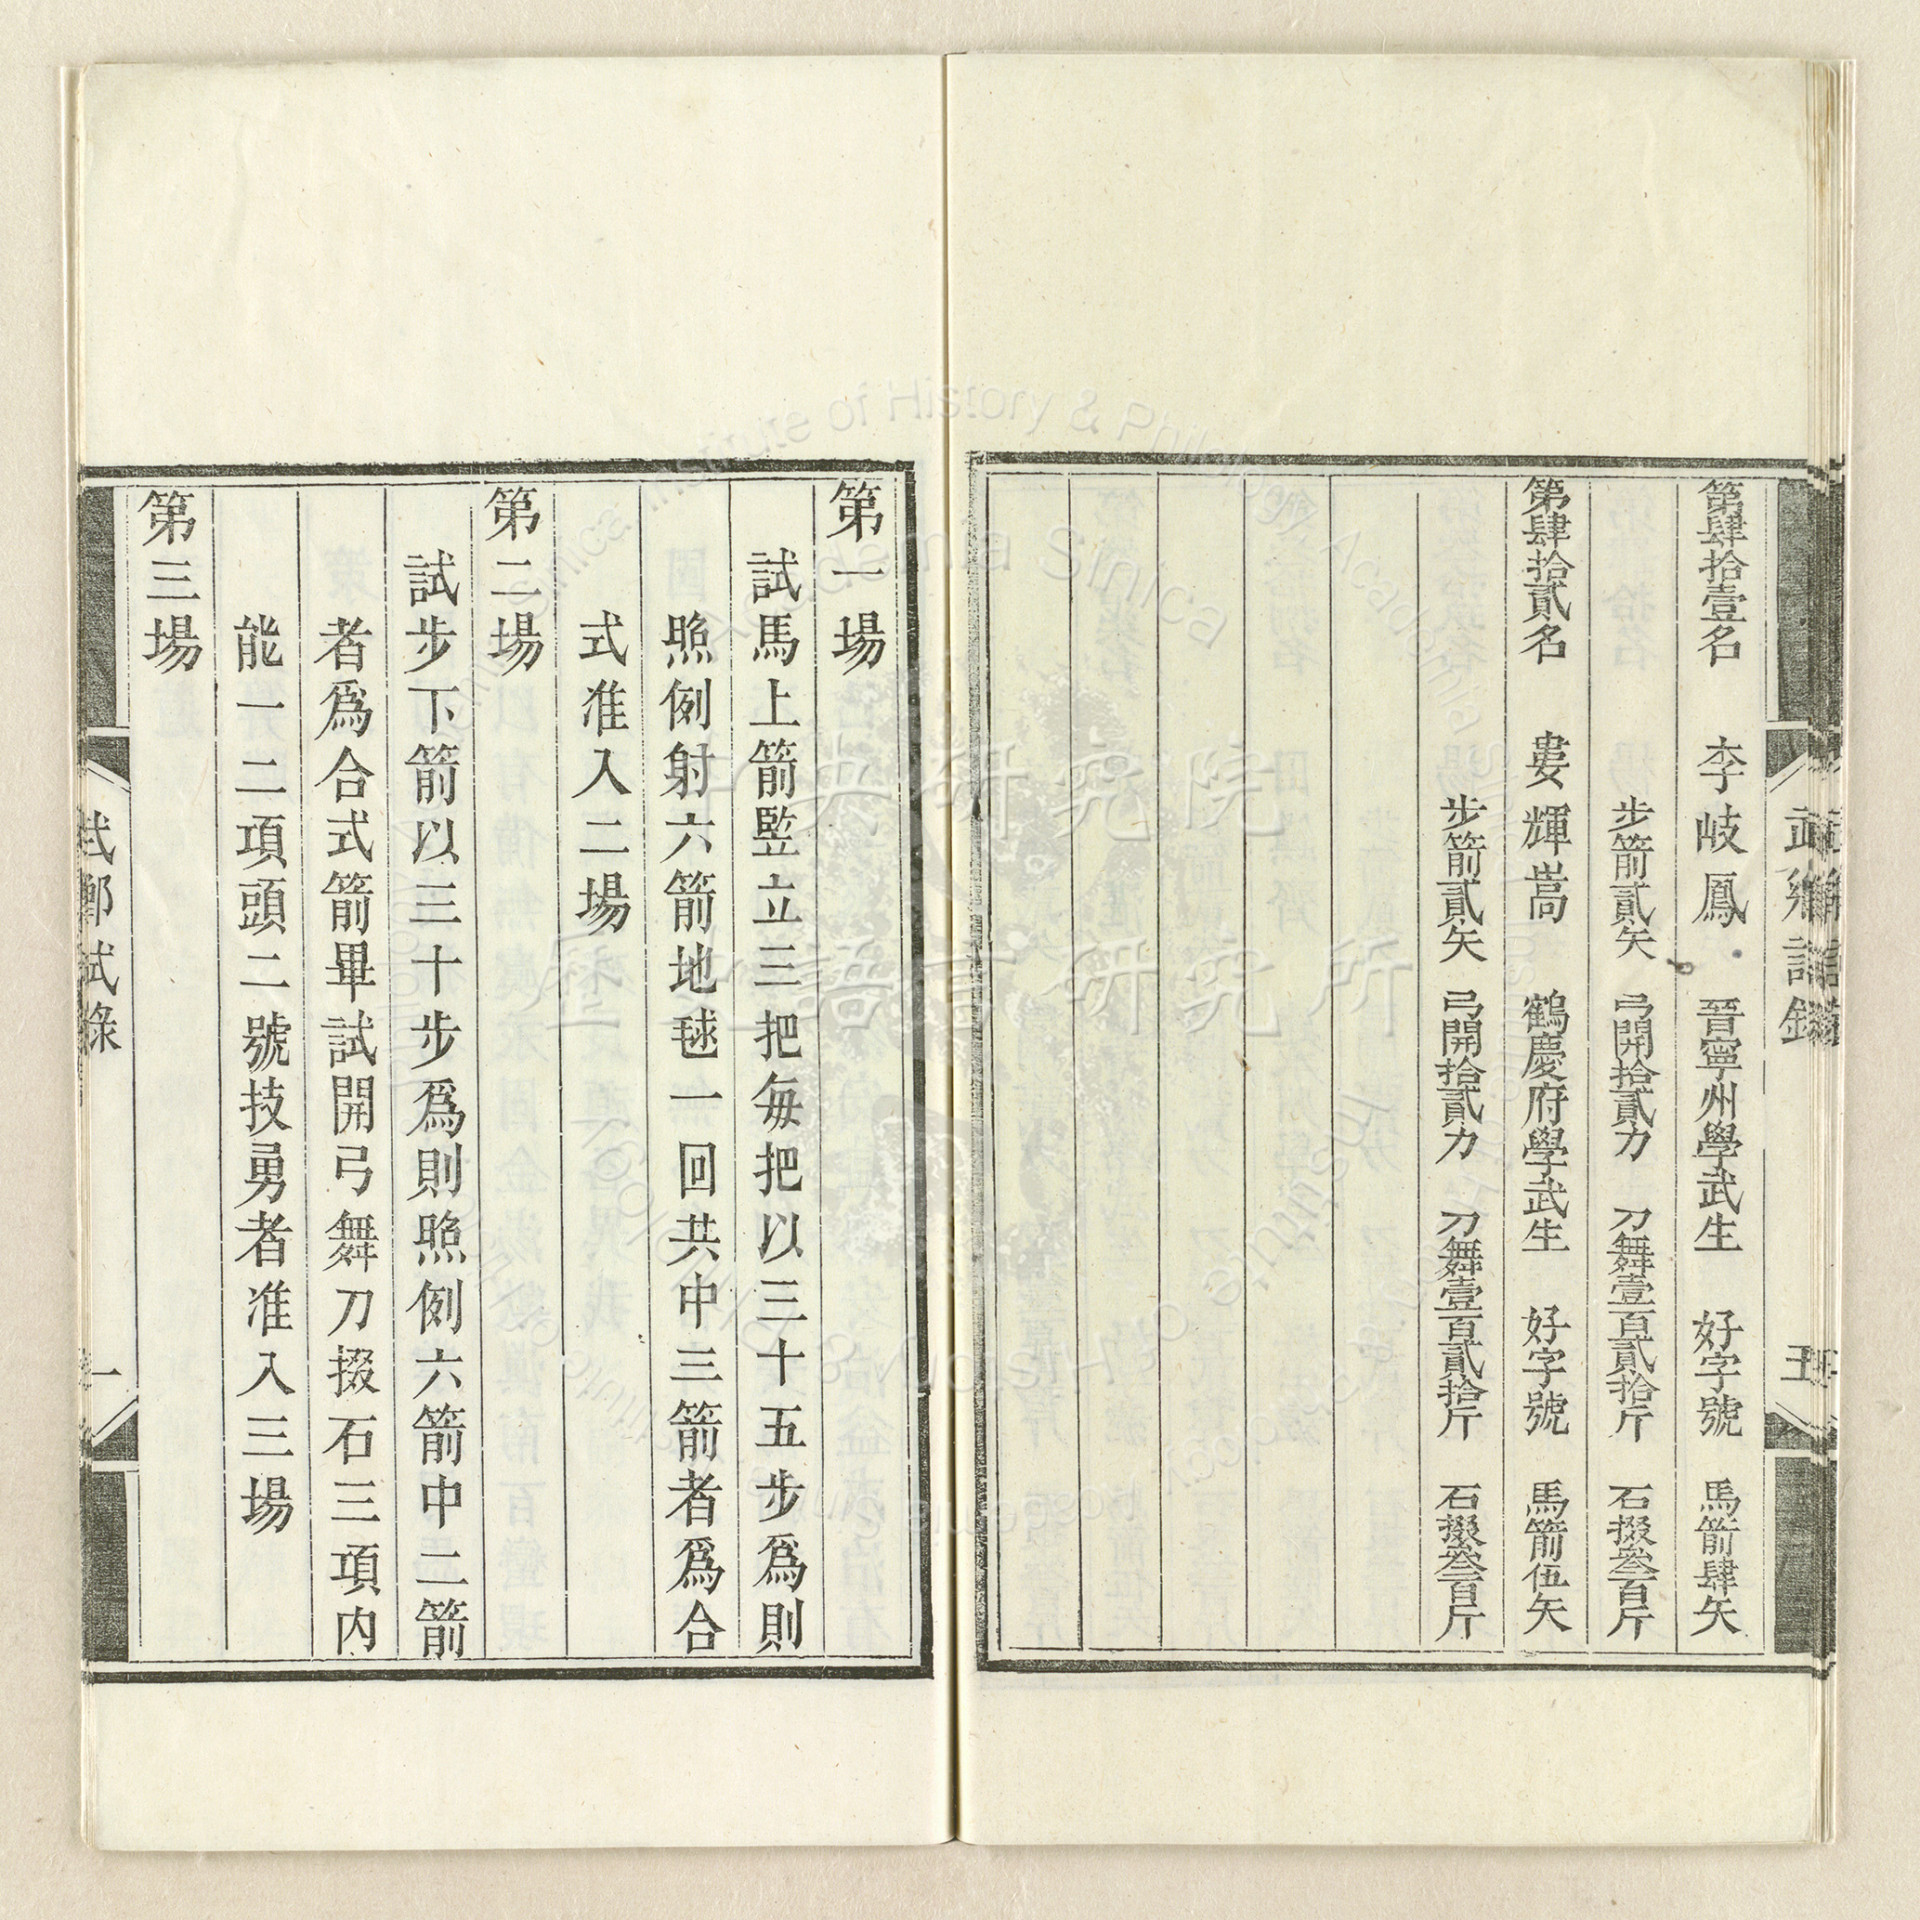 第肆拾壹名 李岐鳳 晉寧州學武生 好字號 馬箭肆矢
步箭貳矢 弓開拾貳力 刀舞壹百貳拾斤 石掇叁百斤
第肆拾貳名 婁輝嵩 鶴慶府學武生 好字號 馬箭伍矢
步箭貳矢 弓開拾貳力 刀舞壹百貳拾斤 石掇叁百斤
第一場
試馬上箭竪立三把每把以三十五步爲則
照例射六箭地毬一回共中三箭者爲合
式准入二場
第二場
試步下箭以三十步爲則照例六箭中二箭
者爲合式箭畢試開弓舞刀掇石三項内
能一二項頭二號技勇者准入三場
第三場
武鄉試錄 一
Institute of History & Philology Academia Sinica
中央研究院
歷史語言研究所